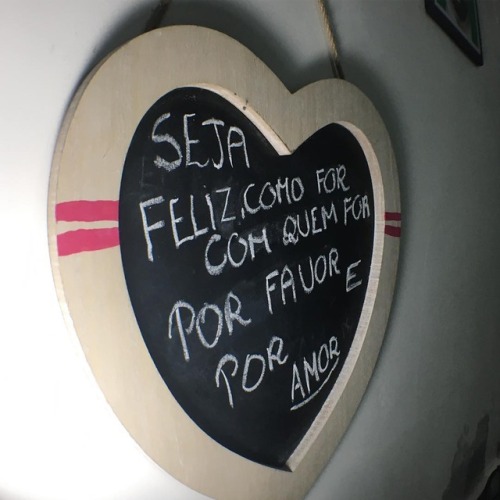 SEJA
FELIZ, COMO FOR
COM QUEM FOR
POR FAVOR E
POR AMOR